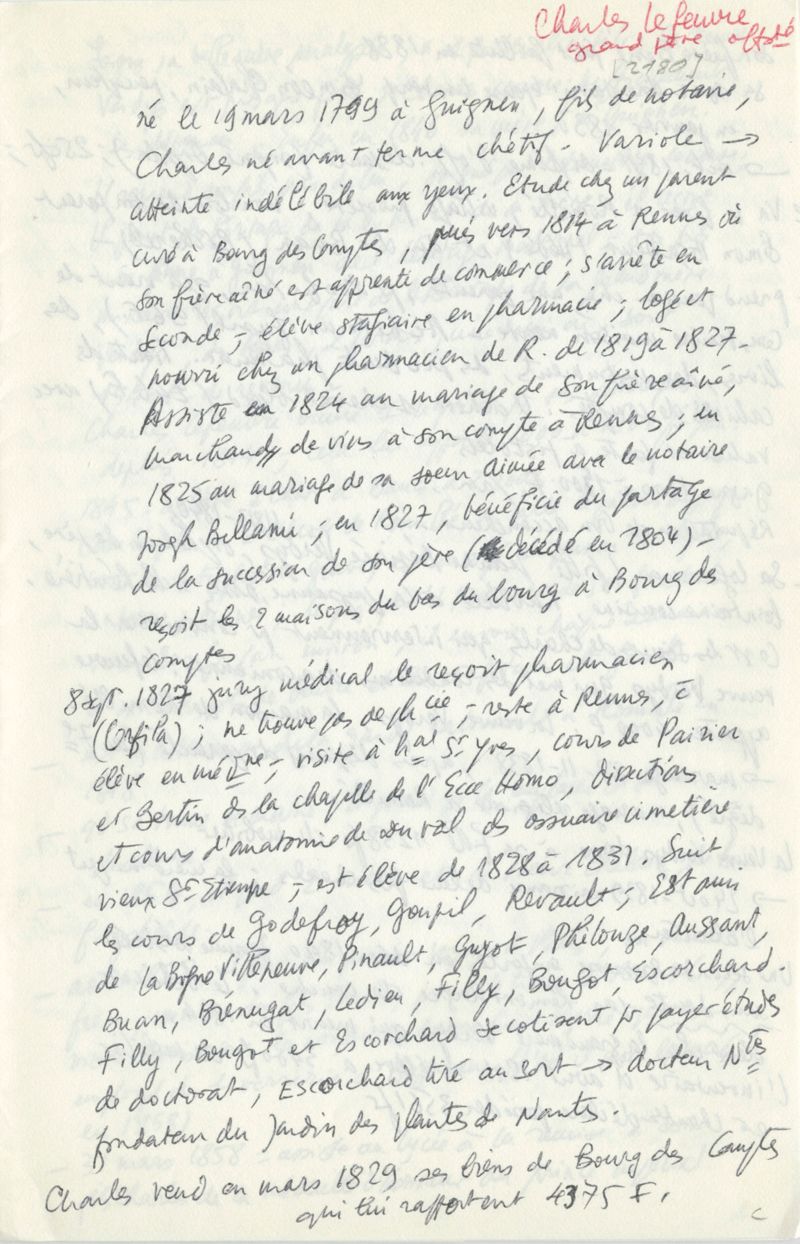 Charles Lefeuvre
grand père
[2180]
né le 19 mars 1799 à Guignen, fils de notaire,
Charles né avant terme chétif. Variole →
atteinte indélébile aux yeux. Etude chez un parent
curé à Bourg des Comptes, puis vers 1814 à Rennes où
son frère aîné est apprenti de commerce ; s'arrête en
seconde ; élève stagiaire en pharmacie ; logé et
nourri chez un pharmacien de R. de 1819 à 1827 -
Assiste en 1824 au mariage de son frère aîné,
marchand de vins à son compte à Rennes ; en
1825 au mariage de sa soeur Aimée avec le notaire
Joseph Bellami ; en 1827, bénéficie du partage
de la succession de son père (décédé en 1804) -
reçoit les 2 maisons du bas du bourg à Bourg des
comptes
8 sept. 1827 jury médical le reçoit pharmacien
(Orfila) ; ne trouve pas de phcie ; reste à Rennes, c̄
élève en médine ; visite à hal St Yves, cours de
et Bertin ds la chapelle de l' Ecce Homo, dissections
et cours d'anatomie de Duval ds ossuaire cimetière
vieux St Etienne ; est élève de 1828 à 1831. Suit
les cours de Godefroy, Goupil, Revault ; Est ami
de la Bigne Villeneuve, Pinault, Guyot, Phélouze, Aussant,
Buan, Brénugat, Ledien, Filly, Bougot, Escorchard.
Filly, Bougot et Escorchard se cotisent pr payer études
de doctorat, Escorchard tiré au sort → docteur Ntes
fondateur du Jardin des plantes de Nantes.
Charles vend en mars 1829 ses biens de Bourg des Comptes
qui lui rapportent 4375 F.